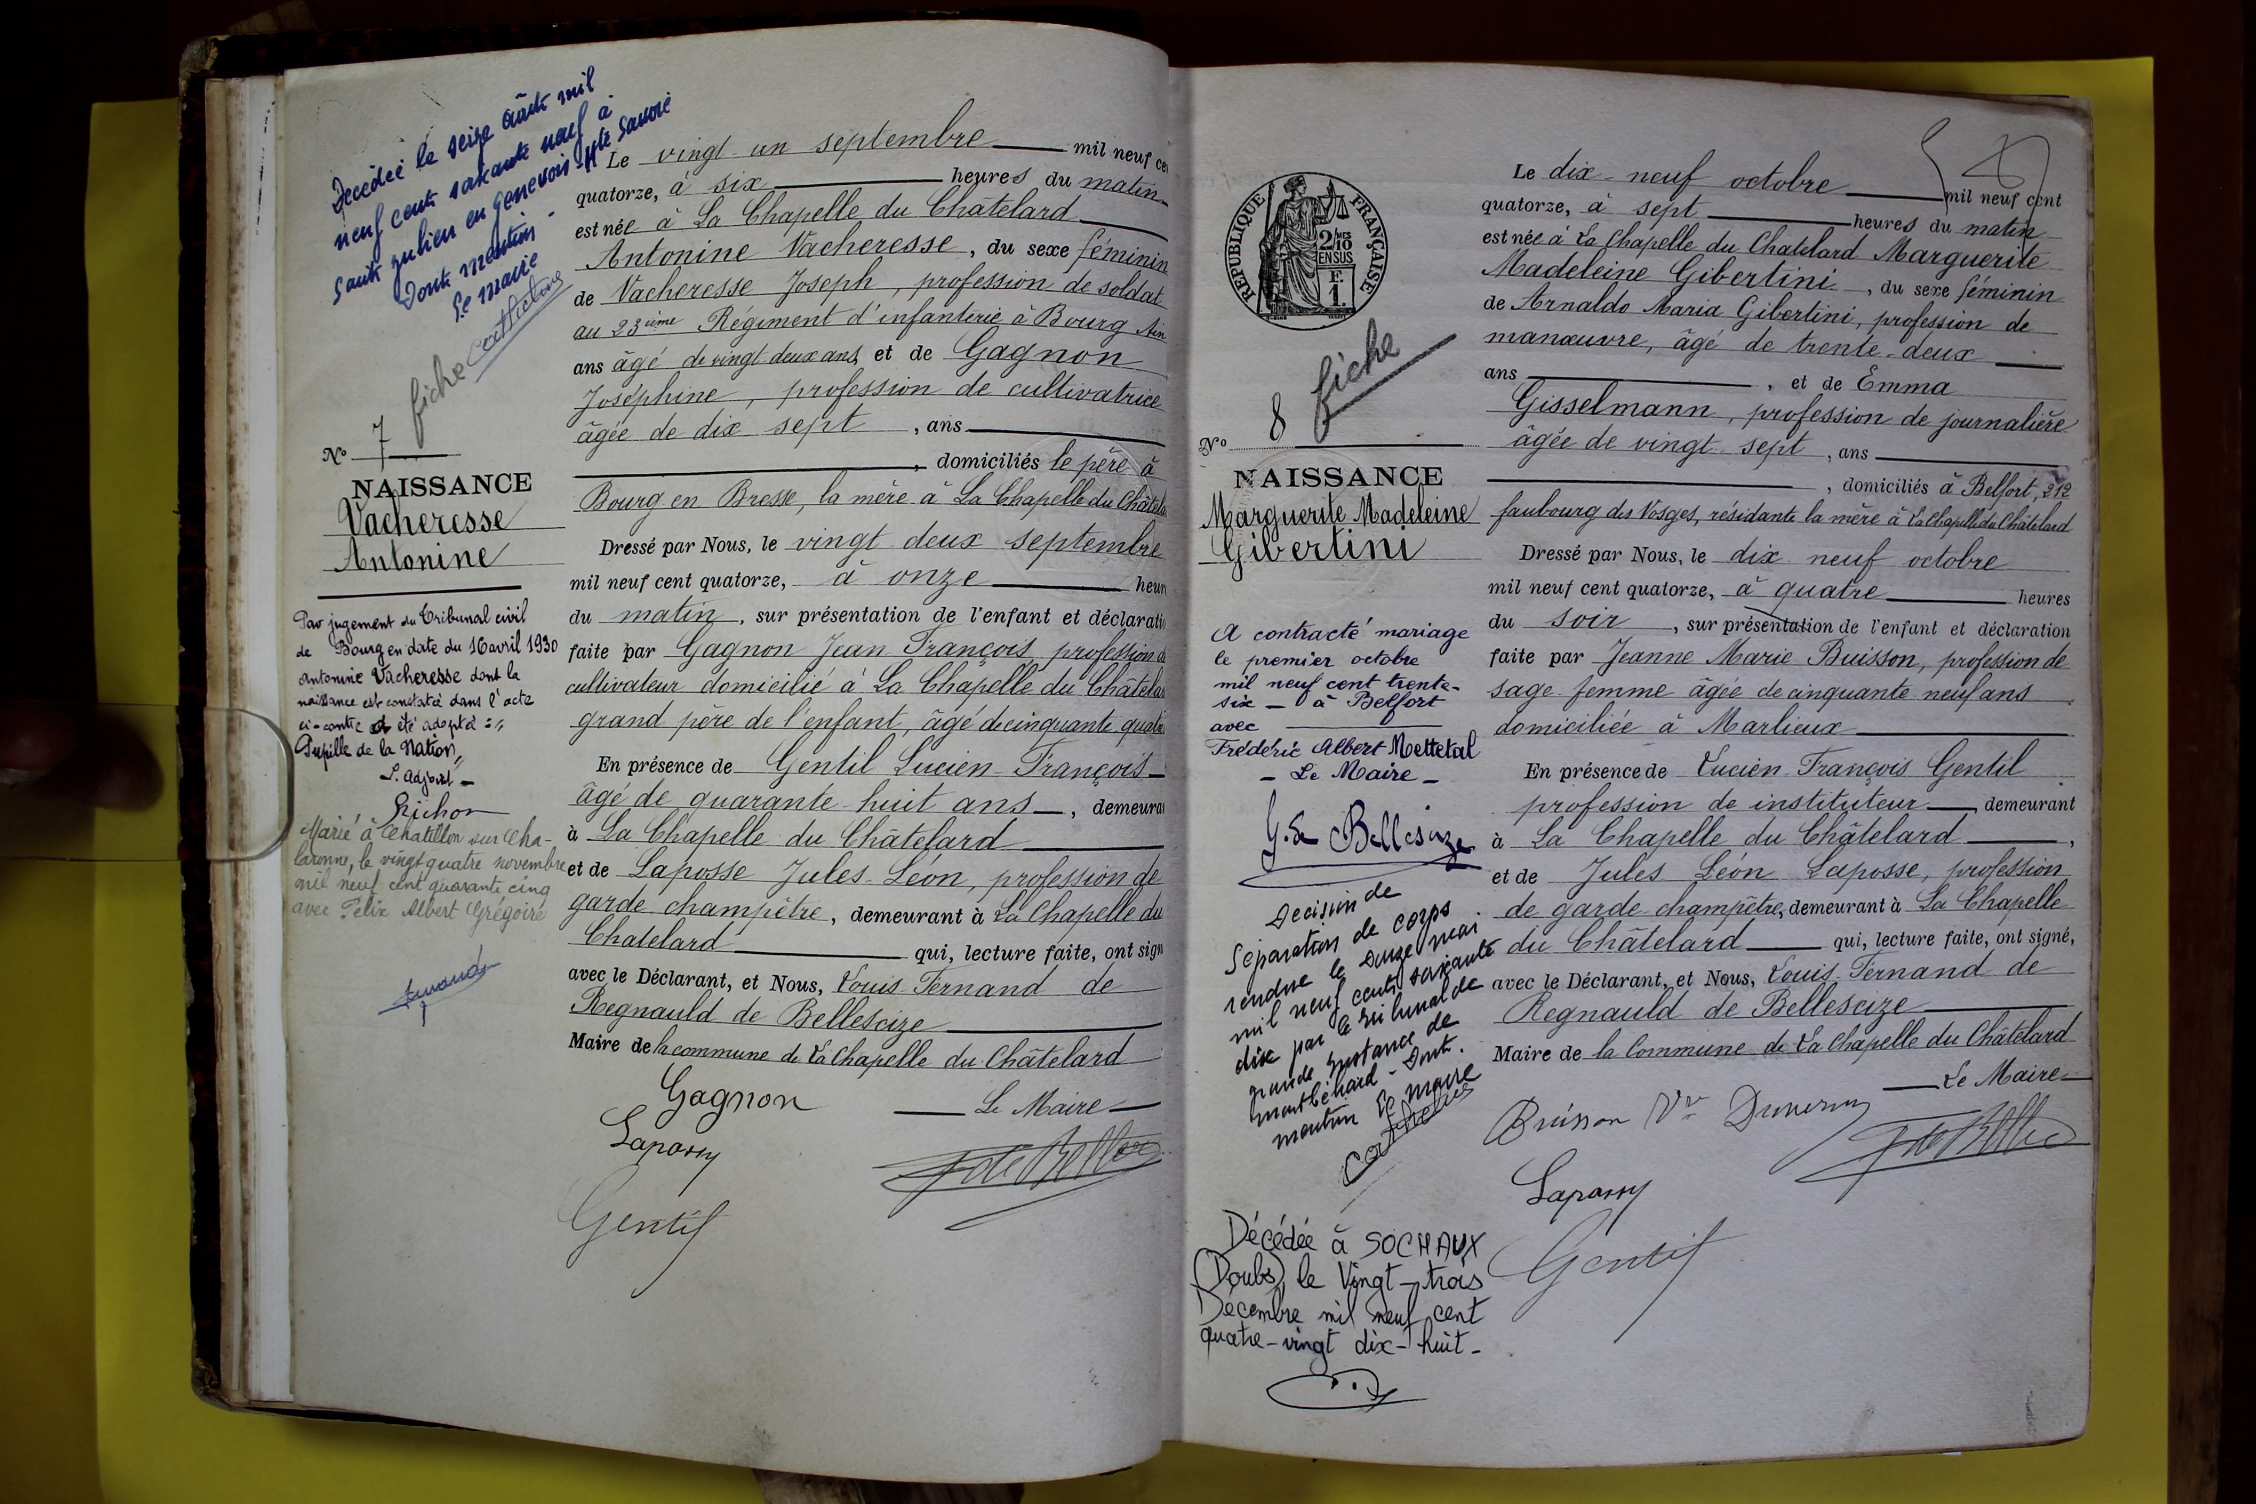 Décédée le seize août mil
neuf cent soixante neuf à
Saint Julien en Genevois Hte Savoie
Dont mention -
Le maire
fiche
No 7
NAISSANCE
Vacheresse
Antonine
Par jugement du Tribunal civil
de Bourg en date du 16 avril 1930
Antonine Vacheresse dont la
naissance est constatée dans l'acte
ci-contre a été adoptée
Pupille de la Nation
L'adjoint
Richon
Marié à Chatillon sur Cha-
laronne, le vingt quatre novembre
mil neuf cent quarante cinq
avec Félix Albert Grégoire
Le vingt un septembre mil neuf ce
quatorze, à six heures du matin
est née à La Chapelle du Châtelard
Antonine Vacheresse, du sexe féminin
de Vacheresse Joseph, profession de soldat
au 23ième Régiment d'infanterie à Bourg Ain
ans âgé de vingt deux ans, et de Gagnon
Joséphine, profession de cultivatrice
âgée de dix sept, ans
, domiciliés le père à
Bourg en Bresse, la mère à La Chapelle du Châtela
Dressé par Nous, le vingt deux septembre
mil neuf cent quatorze, à onze heur
du matin, sur présentation de l'enfant et déclarati
faite par Gagnon Jean François, profession d
cultivateur domicilié à La Chapelle du Châtelar
grand père de l'enfant, âgé de cinquante quatr
En présence de Gentil Lucien François
âgé de quarante huit ans, demeura
à La Chapelle du Châtelard
et de Laposse Jules Léon, profession de
garde champêtre, demeurant à La Chapelle du
Chatelard qui, lecture faite, ont sign
avec le Déclarant, et Nous, Louis Fernand de
Regnauld de Bellescize
Maire de la commune de La Chapelle du Châtelard
Gagnon Le Maire
Laposse
Gentil
RÉPUBLIQUE FRANÇAISE
2/10
EN SUS
F.
1.
fiche
No 8
NAISSANCE
Marguerite Madeleine
Gibertini
A contracté mariage
le premier octobre
mil neuf cent trente-
six - à Belfort
avec
Frédéric Albert Mettetal
- Le Maire -
G. de Bellescize
Decision de
Séparation de corps
rendue le Douze mai
mil neuf cent soixante
dix par le Tribunal de
grande instance de
montbéliard - Dont
mention Le maire
Décédée à SOCHAUX
(Doubs), le Vingt-trois
Décembre mil neuf cent
quatre-vingt dix-huit-
Le dix-neuf octobre mil neuf cent
quatorze, à sept heures du matin
est née à La Chapelle du Chatelard Marguerite
Madeleine Gibertini, du sexe féminin
de Arnaldo Maria Gibertini, profession de
manœuvre, âgé de trente-deux
ans, et de Emma
Gisselmann, profession de journalière
âgée de vingt sept, ans
, domiciliés à Belfort, 212
faubourg des Vosges, résidante la mère à La Chapelle du Châtelard
Dressé par Nous, le dix neuf octobre
mil neuf cent quatorze, à quatre heures
du soir, sur présentation de l'enfant et déclaration
faite par Jeanne Marie Buisson, profession de
sage femme âgée de cinquante neuf ans
domiciliée à Marlieux
En présence de Lucien François Gentil
profession de instituteur, demeurant
à La Chapelle du Châtelard,
et de Jules Léon Laposse, profession
de garde champêtre, demeurant à La Chapelle
du Châtelard qui, lecture faite, ont signé,
avec le Déclarant, et Nous, Louis Fernand de
Regnauld de Bellescize
Maire de la Commune de La Chapelle du Châtelard
Le Maire
Buisson Vve
Laposse
Gentil